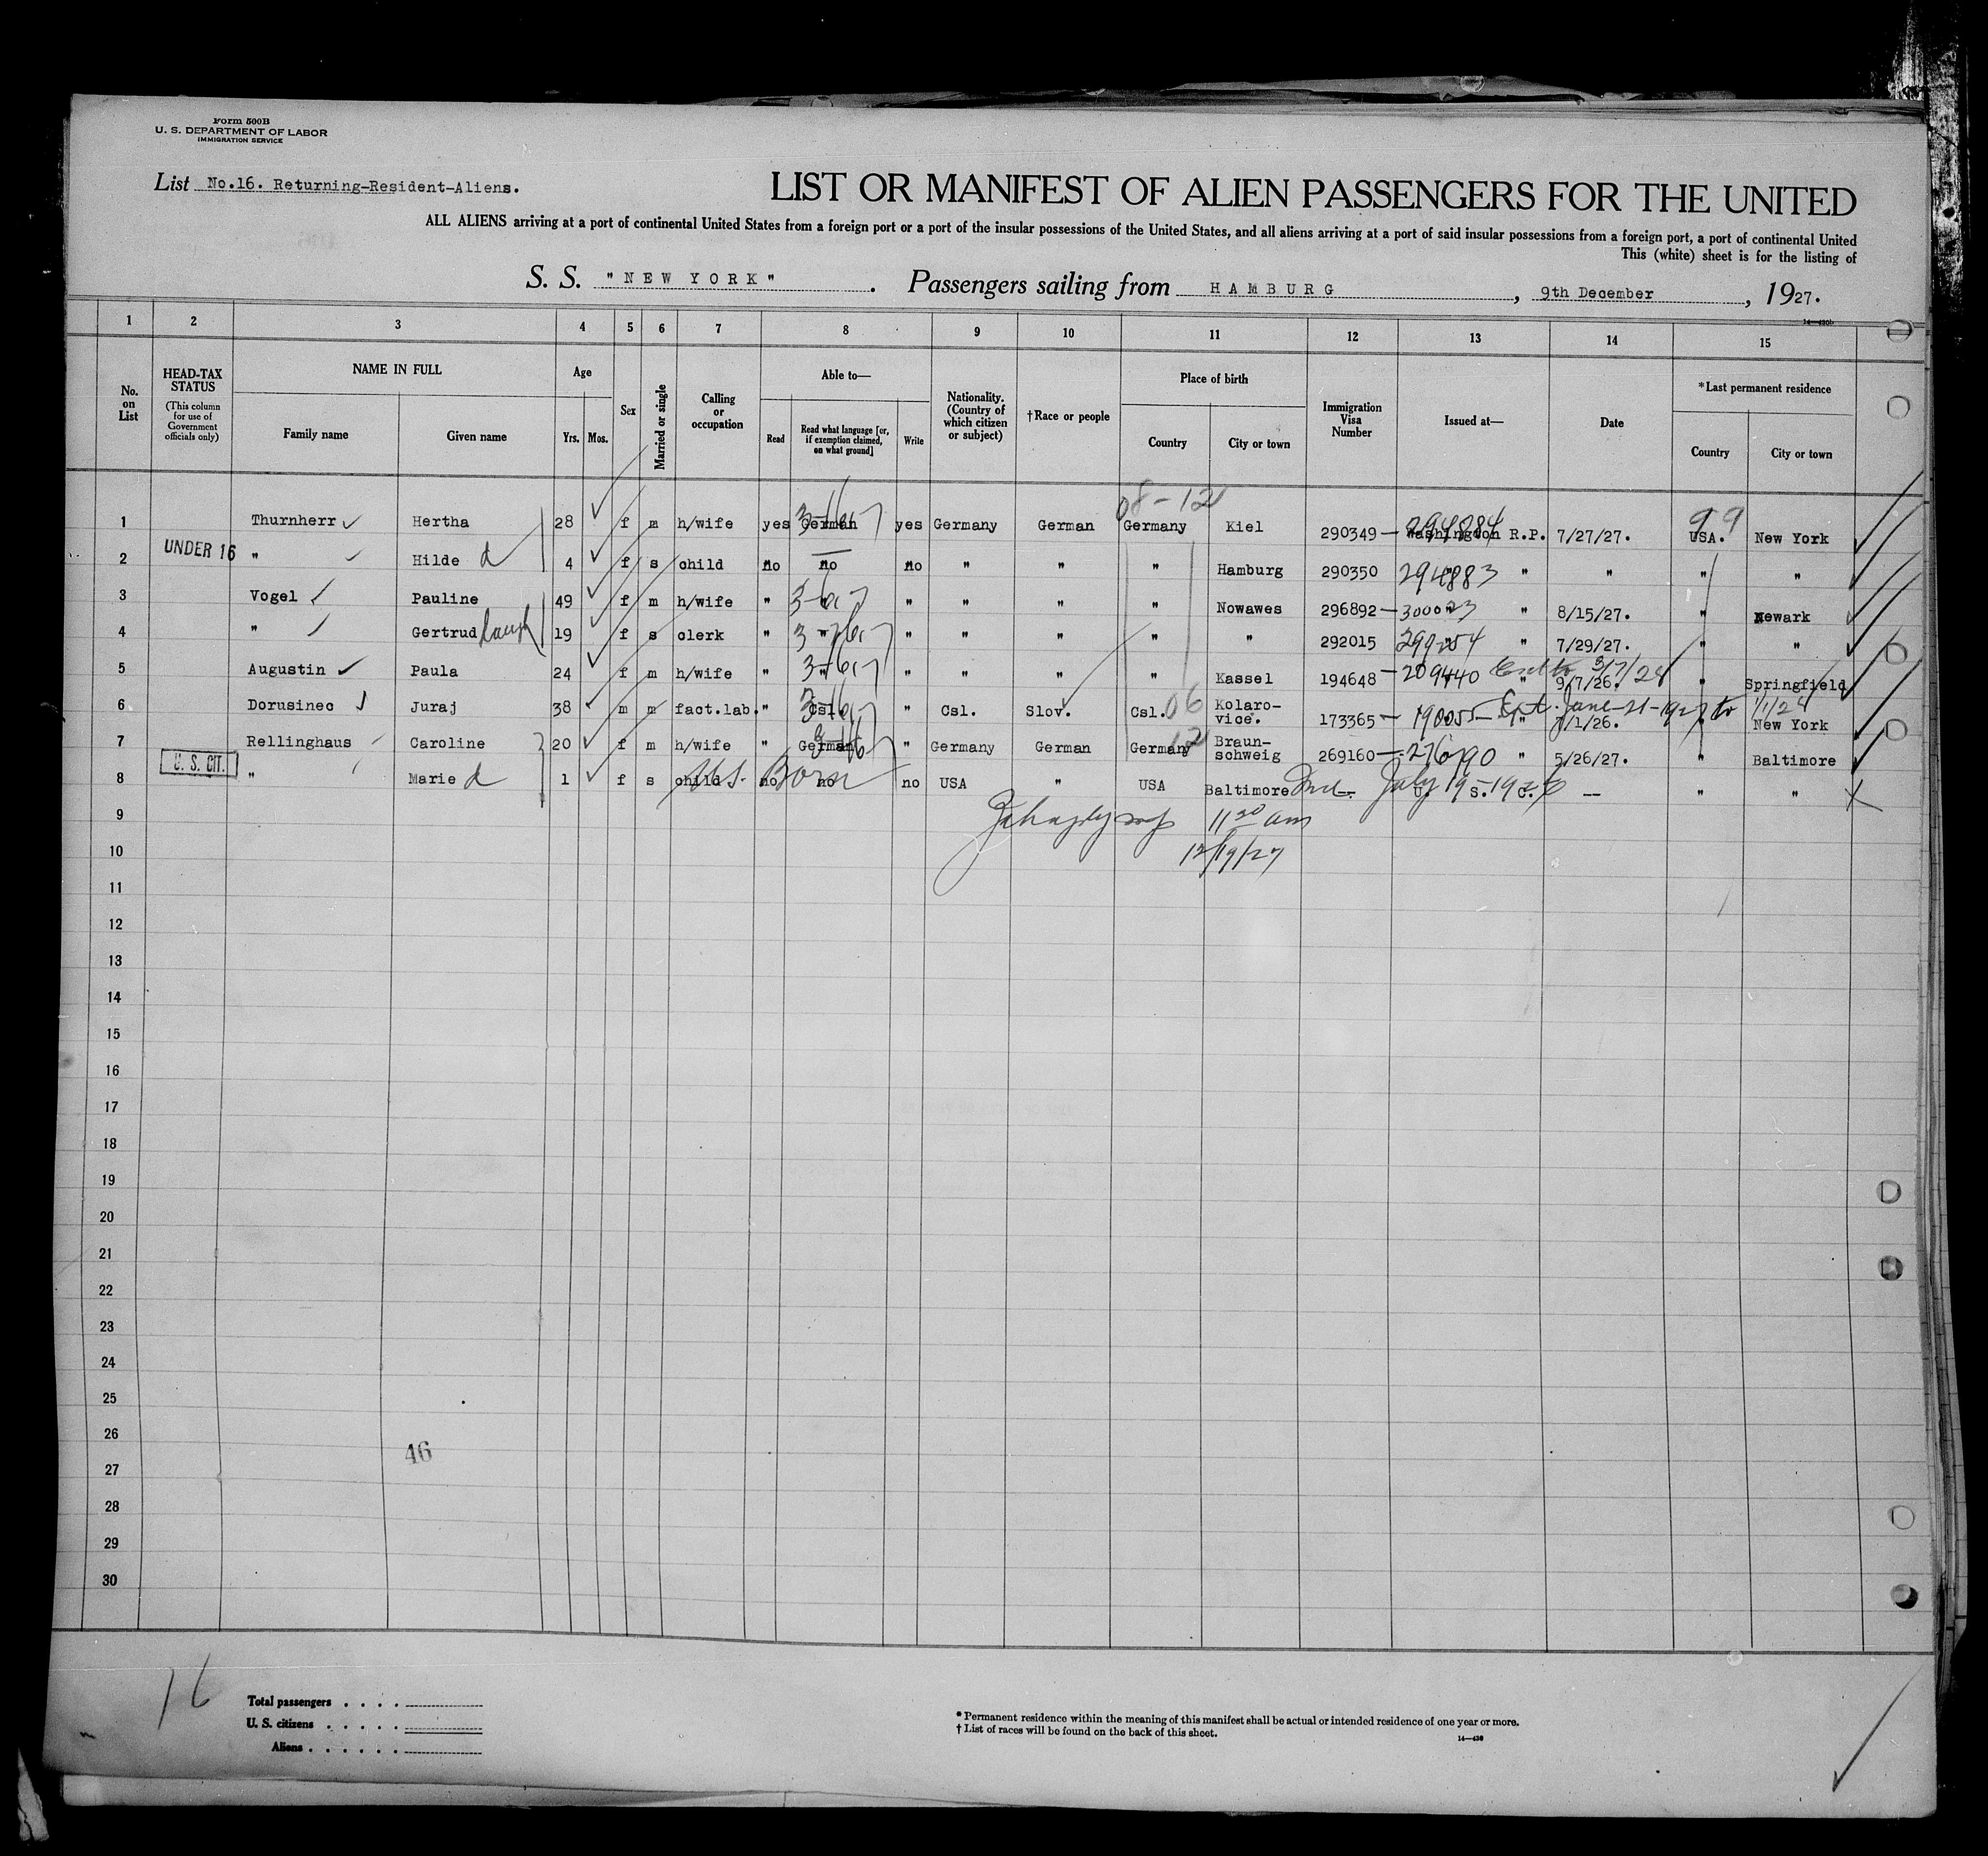 Form 500B
U. S. DEPARTMENT OF LABOR
IMMIGRATION SERVICE
List No.16. Returning-Resident-Aliens.
LIST OR MANIFEST OF ALIEN PASSENGERS FOR THE UNITED
ALL ALIENS arriving at a port of continental United States from a foreign port or a port of the insular possessions of the United States, and all aliens arriving at a port of said insular possessions from a foreign port, a port of continental United
This (white) sheet is for the listing of
S. S. "NEW YORK" . Passengers sailing from HAMBURG , 9th December , 1927.
1 2 3 4 5 6 7 8 9 10 11 12 13 14 15
No. on List
HEAD-TAX STATUS (This column for use of Government officials only)
NAME IN FULL
Family name Given name
Age
Yrs. Mos.
Sex
Married or single
Calling or occupation
Able to—
Read
Read what language [or, if exemption claimed, on what ground]
Write
Nationality. (Country of which citizen or subject)
†Race or people
Place of birth
Country City or town
Immigration Visa Number
Issued at—
Date
*Last permanent residence
Country City or town
08-12
1 Thurnherr Hertha 28 f m h/wife yes German yes Germany German Germany Kiel 290349 — 294884 Washington R.P. 7/27/27. 99 USA. New York
2 UNDER 16 " Hilde d 4 f s child no no no " " " Hamburg 290350 294883 " " " "
3 Vogel Pauline 49 f m h/wife " " " " " " Nowawes 296892 — 300023 " 8/15/27. " Newark
4 " Gertrud 19 f s clerk " " " " " " " 292015 " 7/29/27. " "
5 Augustin Paula 24 f m h/wife " " " " " " Kassel 194648 — 209440 " 9/7/26. " Springfield
6 Dorusinec Juraj 38 m m fact.lab. " Csl. " Csl. Slov. Csl. 06 Kolarovice. 173365 — 190055 Ext. June-21-1927 to 1/1/28 " /1/26. " New York
7 Rellinghaus Caroline 20 f m h/wife " German " Germany German Germany 12 Braunschweig 269160 — 276790 " 5/26/27. " Baltimore
8 U. S. CIT. " Marie d 1 f s child U.S. Born no no no USA " USA Baltimore Md. July 19 U. S. C. — " "
9 11 30 am
10 12/19/27
11
12
13
14
15
16
17
18
19
20
21
22
23
24
25
26
46
27
28
29
30
16
Total passengers . . . .
U. S. citizens . . . . .
Aliens . . . . . .
* Permanent residence within the meaning of this manifest shall be actual or intended residence of one year or more.
† List of races will be found on the back of this sheet.
14—430